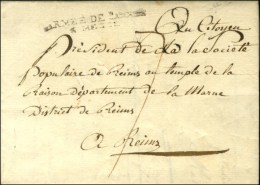 Au Citoyen
Président de la Société
Populaire de Reims au temple de la
Raison Département de la Marne
District de Reims
A Reims